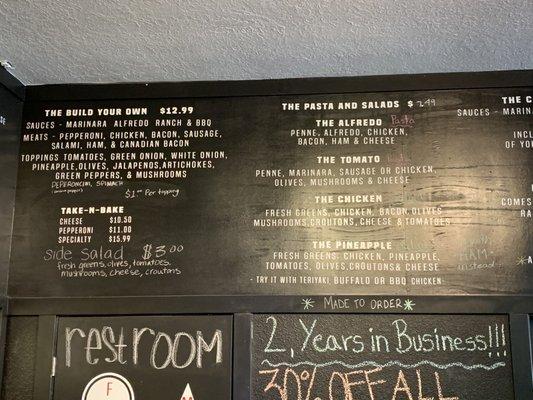 THE BUILD YOUR OWN $12.99
SAUCES - MARINARA ALFREDO RANCH & BBQ
MEATS - PEPPERONI, CHICKEN, BACON, SAUSAGE,
SALAMI, HAM, & CANADIAN BACON
TOPPINGS TOMATOES, GREEN ONION, WHITE ONION,
PINEAPPLE, OLIVES, JALAPENOS, ARTICHOKES,
GREEN PEPPERS, & MUSHROOMS
PEPERONCINI, SPINACH
Per topping
TAKE-N-BAKE
CHEESE $10.50
PEPPERONI $11.00
SPECIALTY $15.99
side salad $3.00
fresh greens, olives, tomatoes,
mushrooms, cheese, croutons
THE PASTA AND SALADS
THE ALFREDO Pasta
PENNE, ALFREDO, CHICKEN,
BACON, HAM & CHEESE
THE TOMATO
PENNE, MARINARA, SAUSAGE OR CHICKEN,
OLIVES, MUSHROOMS & CHEESE
THE CHICKEN
FRESH GREENS, CHICKEN, BACON, OLIVES
MUSHROOMS, CROUTONS, CHEESE & TOMATOES
THE PINEAPPLE
FRESH GREENS, CHICKEN, PINEAPPLE,
TOMATOES, OLIVES, CROUTONS & CHEESE
- TRY IT WITH TERIYAKI, BUFFALO OR BBQ CHICKEN
HAM
instead
THE C
SAUCES - MARIN
INCL
OF YO
COMES
RA
MADE TO ORDER
restroom
F
2, Years in Business!!!
30% OFF ALL